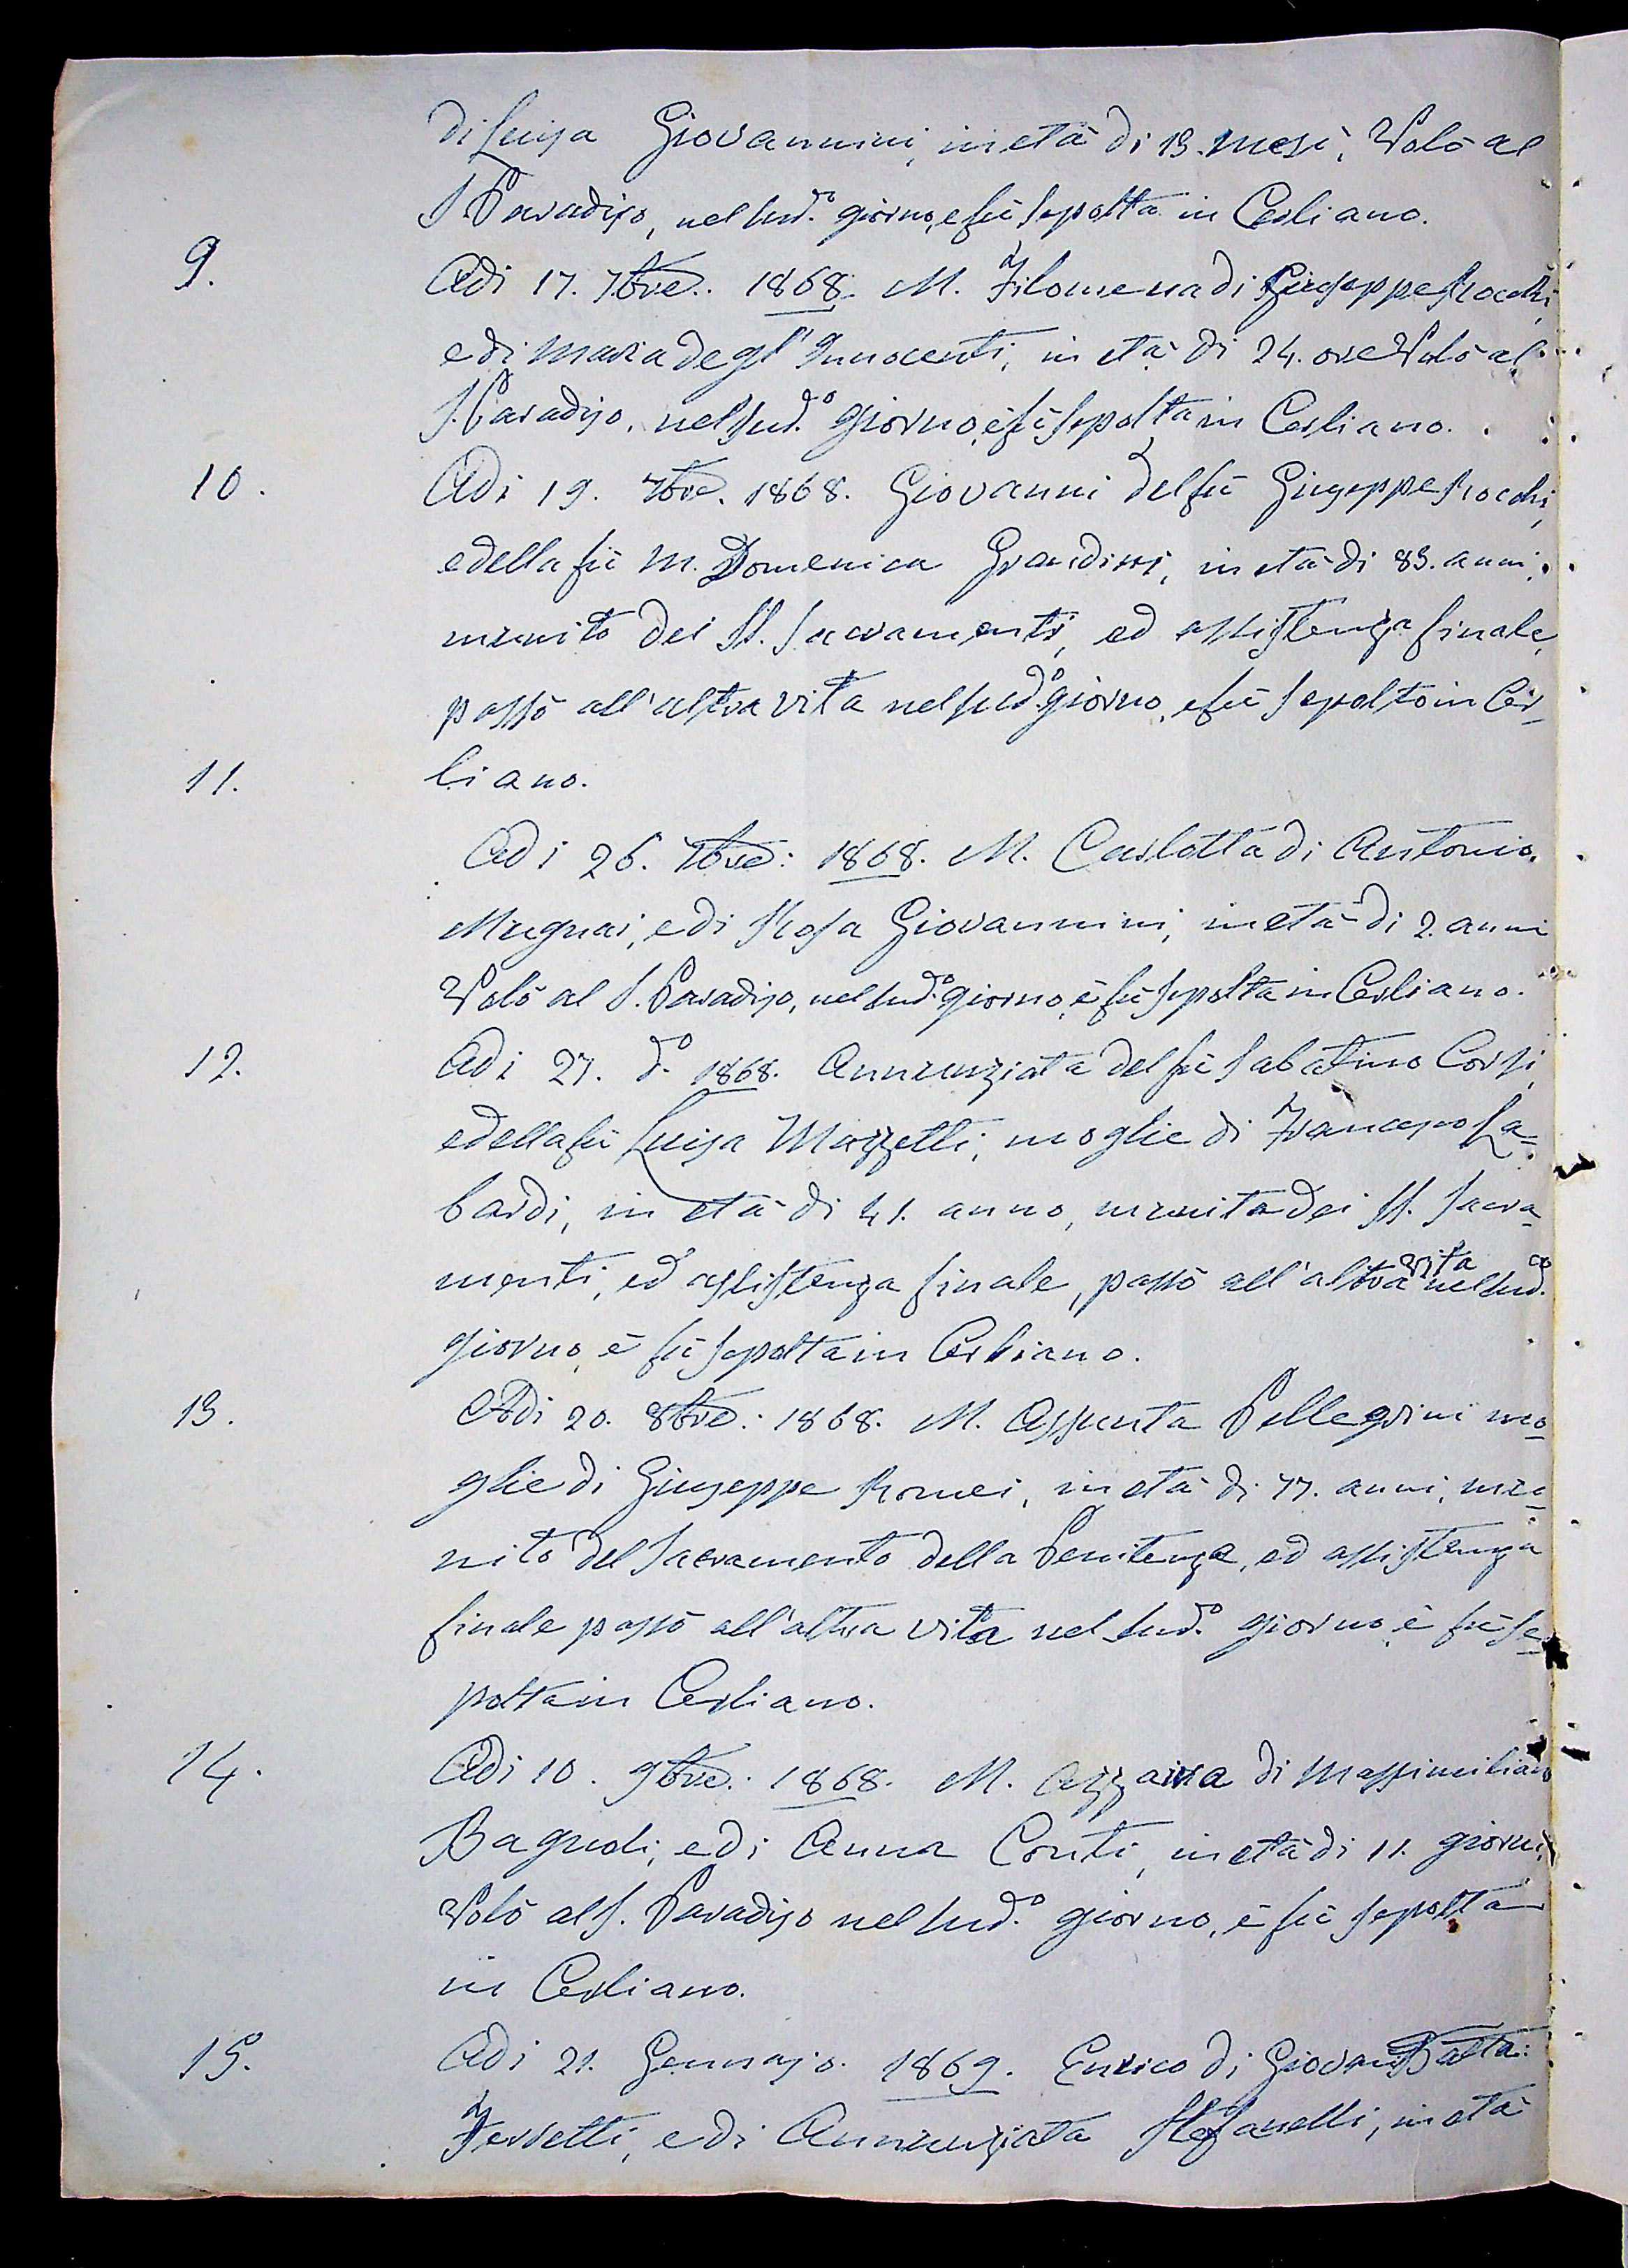 di Luisa Giovannini, in età di 13. mesi, Volò al
S. Paradiso, nel sud.o giorno, e fù sepolta in Cerliano.
9. Adi 17. 7bre. 1868. M. Filomena di Giuseppe Rocchi,
e di Maria degl'Innocenti, in età di 24. ore Volò al
S. Paradiso, nel sud.o giorno, e fù sepolta in Cerliano.
10. Adi 19. 7bre. 1868. Giovanni del fù Giuseppe Rocchi,
e della fù M. Domenica Grandini, in età di 83. anni,
munito dei SS. Sacramenti, ed assistenza finale,
passò all'altra vita nel sud.o giorno, e fù sepolto in Cer=
11. liano.
Adi 26. 7bre: 1868. M. Carlotta di Antonio
Mugnai, e di Rosa Giovannini, in età di 2. anni
Volò al S. Paradiso, nel sud.o giorno, è fù sepolta in Cerliano.
12. Adi 27. d.o 1868. Annunziata del fù Sabatino Corsi,
e della fù Luisa Mazzetti, moglie di Francesco La=
bardi, in età di 41. anno, munita dei SS. Sacra=
menti, ed assistenza finale, passò all'altra vita nel sud.o
giorno, è fù sepolta in Cerliano.
13. Adi 20. 8bre: 1868. M. Assunta Pellegrini mo=
glie di Giuseppe Romei, in età di 77. anni, mu=
nito del Sacramento della Penitenza, ed assistenza
finale passò all'altra vita nel sud.o giorno, è fù se=
polta in Cerliano.
14. Adi 10. 9bre: 1868. M. Azzaira di Massimiliano
Bagnoli, e di Anna Conti, in età di 11. giorni,
Volò al S. Paradiso nel sud.o giorno, è fù sepolta
in Cerliano.
15. Adi 21. Gennajo. 1869. Enrico di Giovan Batta:
Ferretti, e di Annunziata Stefanelli, in età